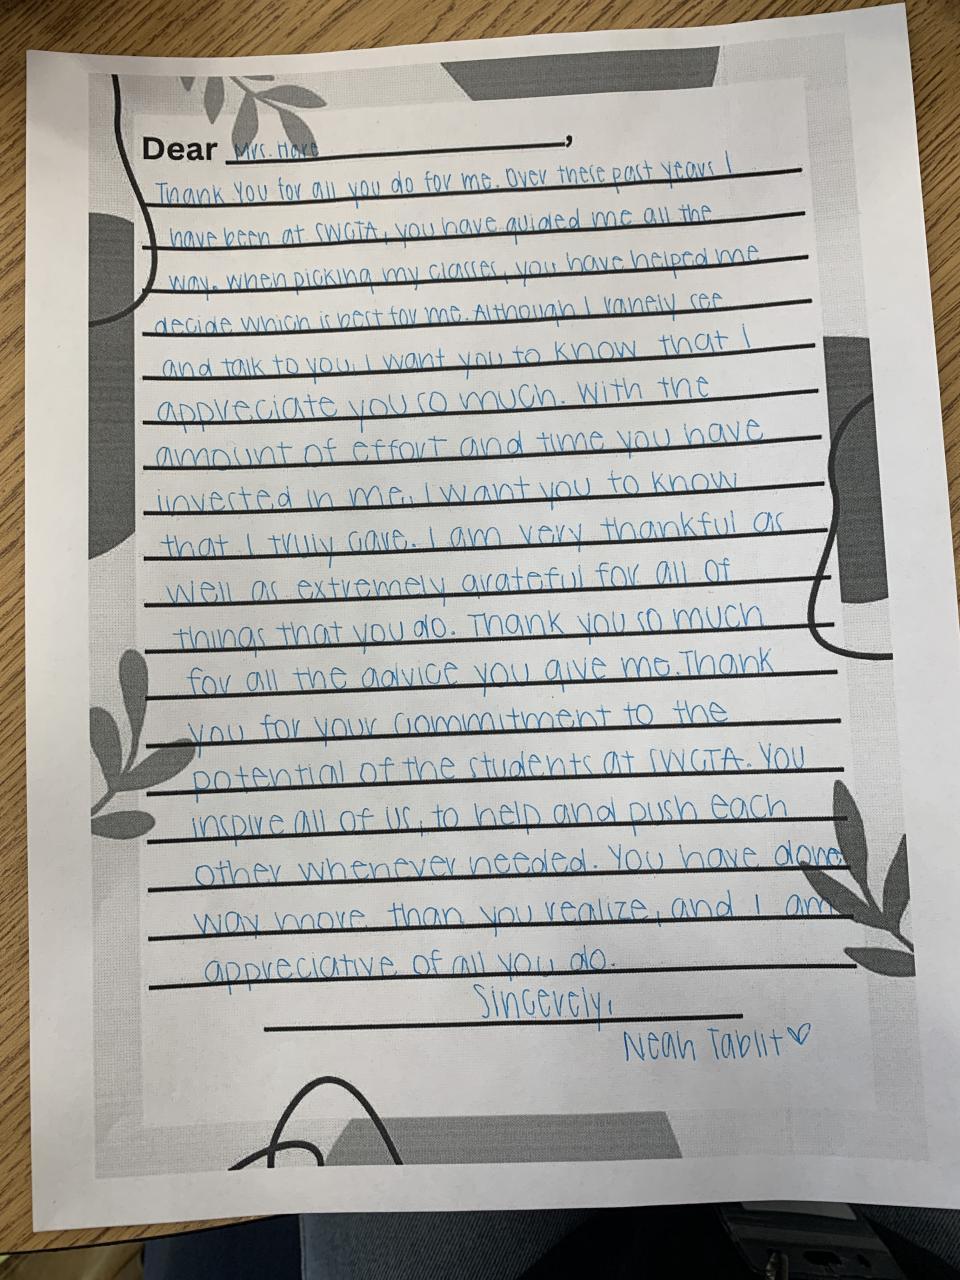 Dear Mrs. Hare,
Thank you for all you do for me. Over these past years I
have been at SWCTA, you have guided me all the
way. When picking my classes, you have helped me
decide which is best for me. Although I rarely see
and talk to you, I want you to know that I
appreciate you so much. With the
amount of effort and time you have
invested in me, I want you to know
that I truly care. I am very thankful as
well as extremely grateful for all of
things that you do. Thank you so much
for all the advice you give me. Thank
you for your commitment to the
potential of the students at SWCTA. You
inspire all of us, to help and push each
other whenever needed. You have done
way more than you realize, and I am
appreciative of all you do.
Sincerely,
Neah Tablit